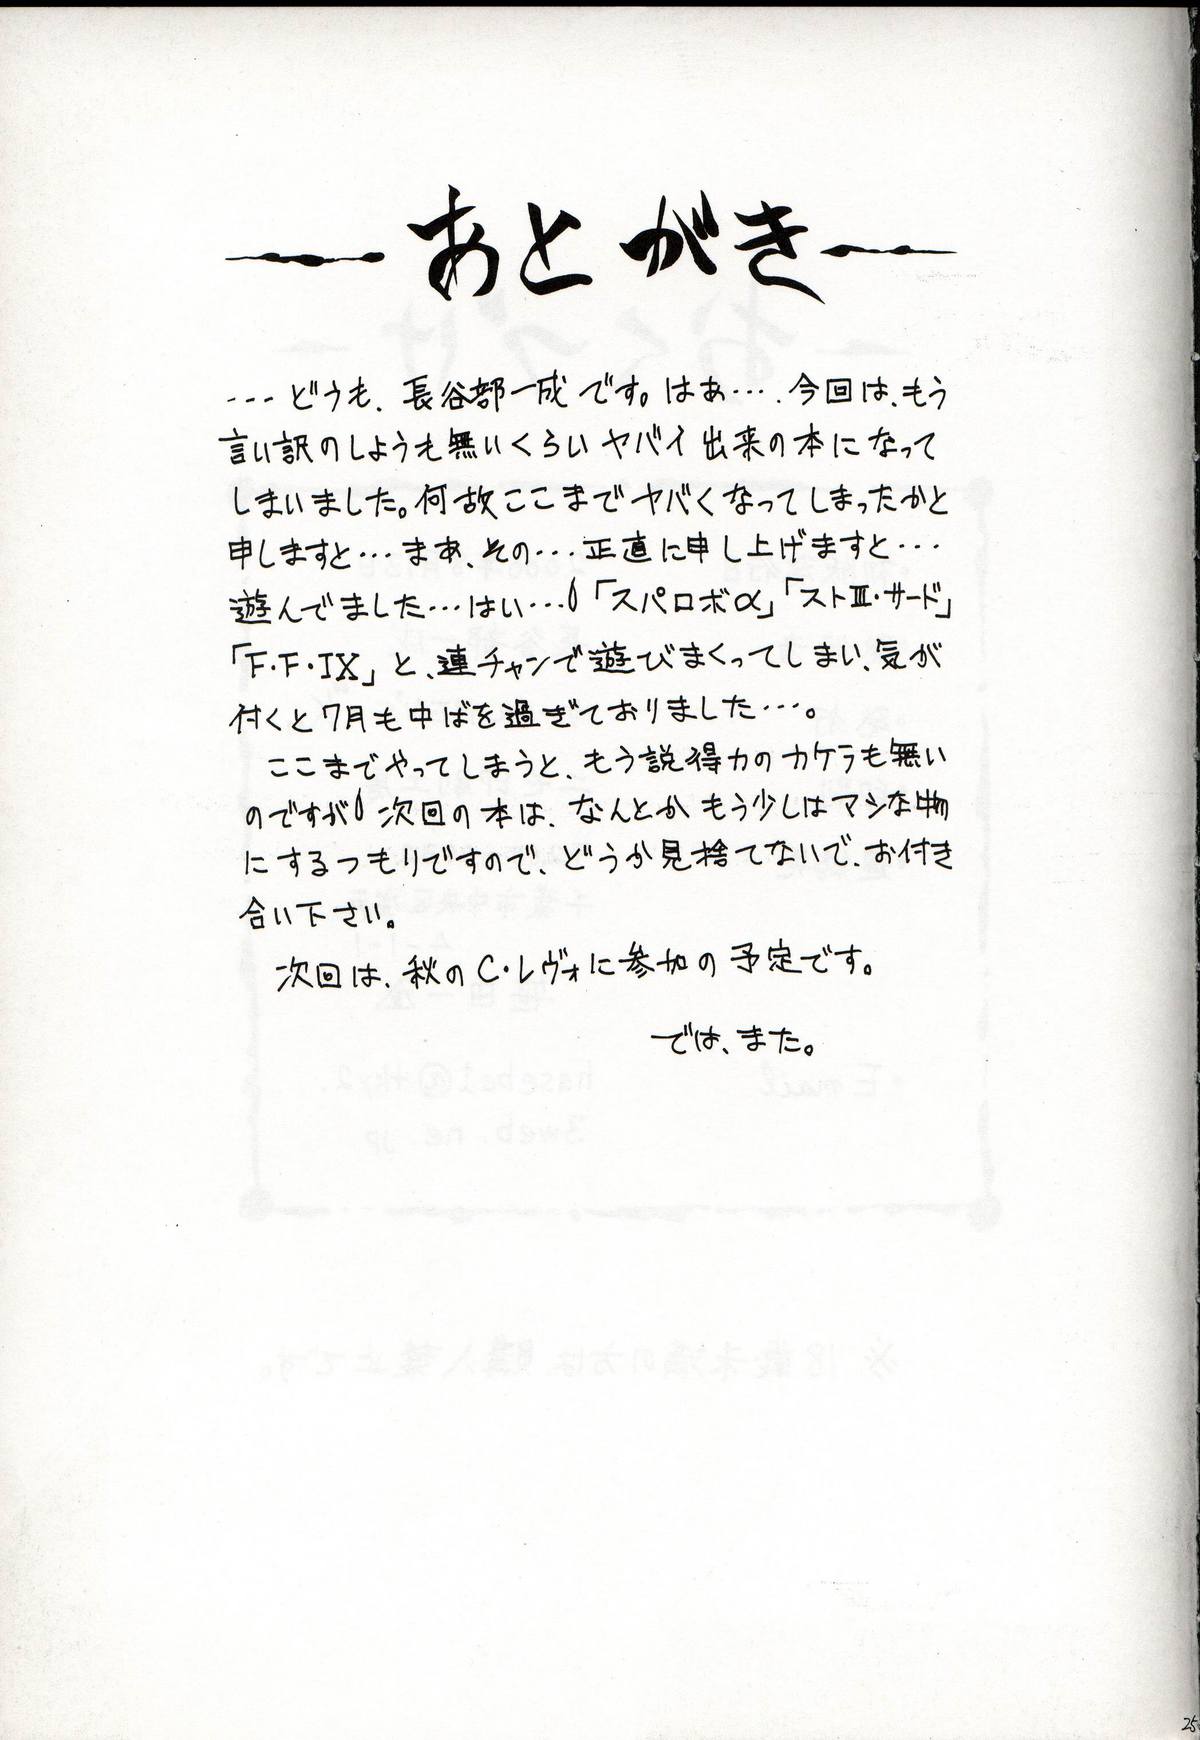 あとがき
・・・どうも、長谷部一成です。はぁ・・・、今回は、もう
言い訳のしようも無いくらいヤバイ出来の本になって
しまいました。何故ここまでヤバくなってしまったかと
申しますと・・・まあ、その・・・正直に申し上げますと・・・
遊んでました・・・はい・・・「スパロボα」「ストⅢ・サード」
「F・F・IX」と、連チャンで遊びまくってしまい、気が
付くと7月も中ばを過ぎておりました・・・。
ここまでやってしまうと、もう説得力のカケラも無い
のですが 次回の本は、なんとかもう少しはマシな物
にするつもりですので、どうか見捨てないで、お付き
合い下さい。
次回は、秋のC・レヴォに参加の予定です。
では、また。
25